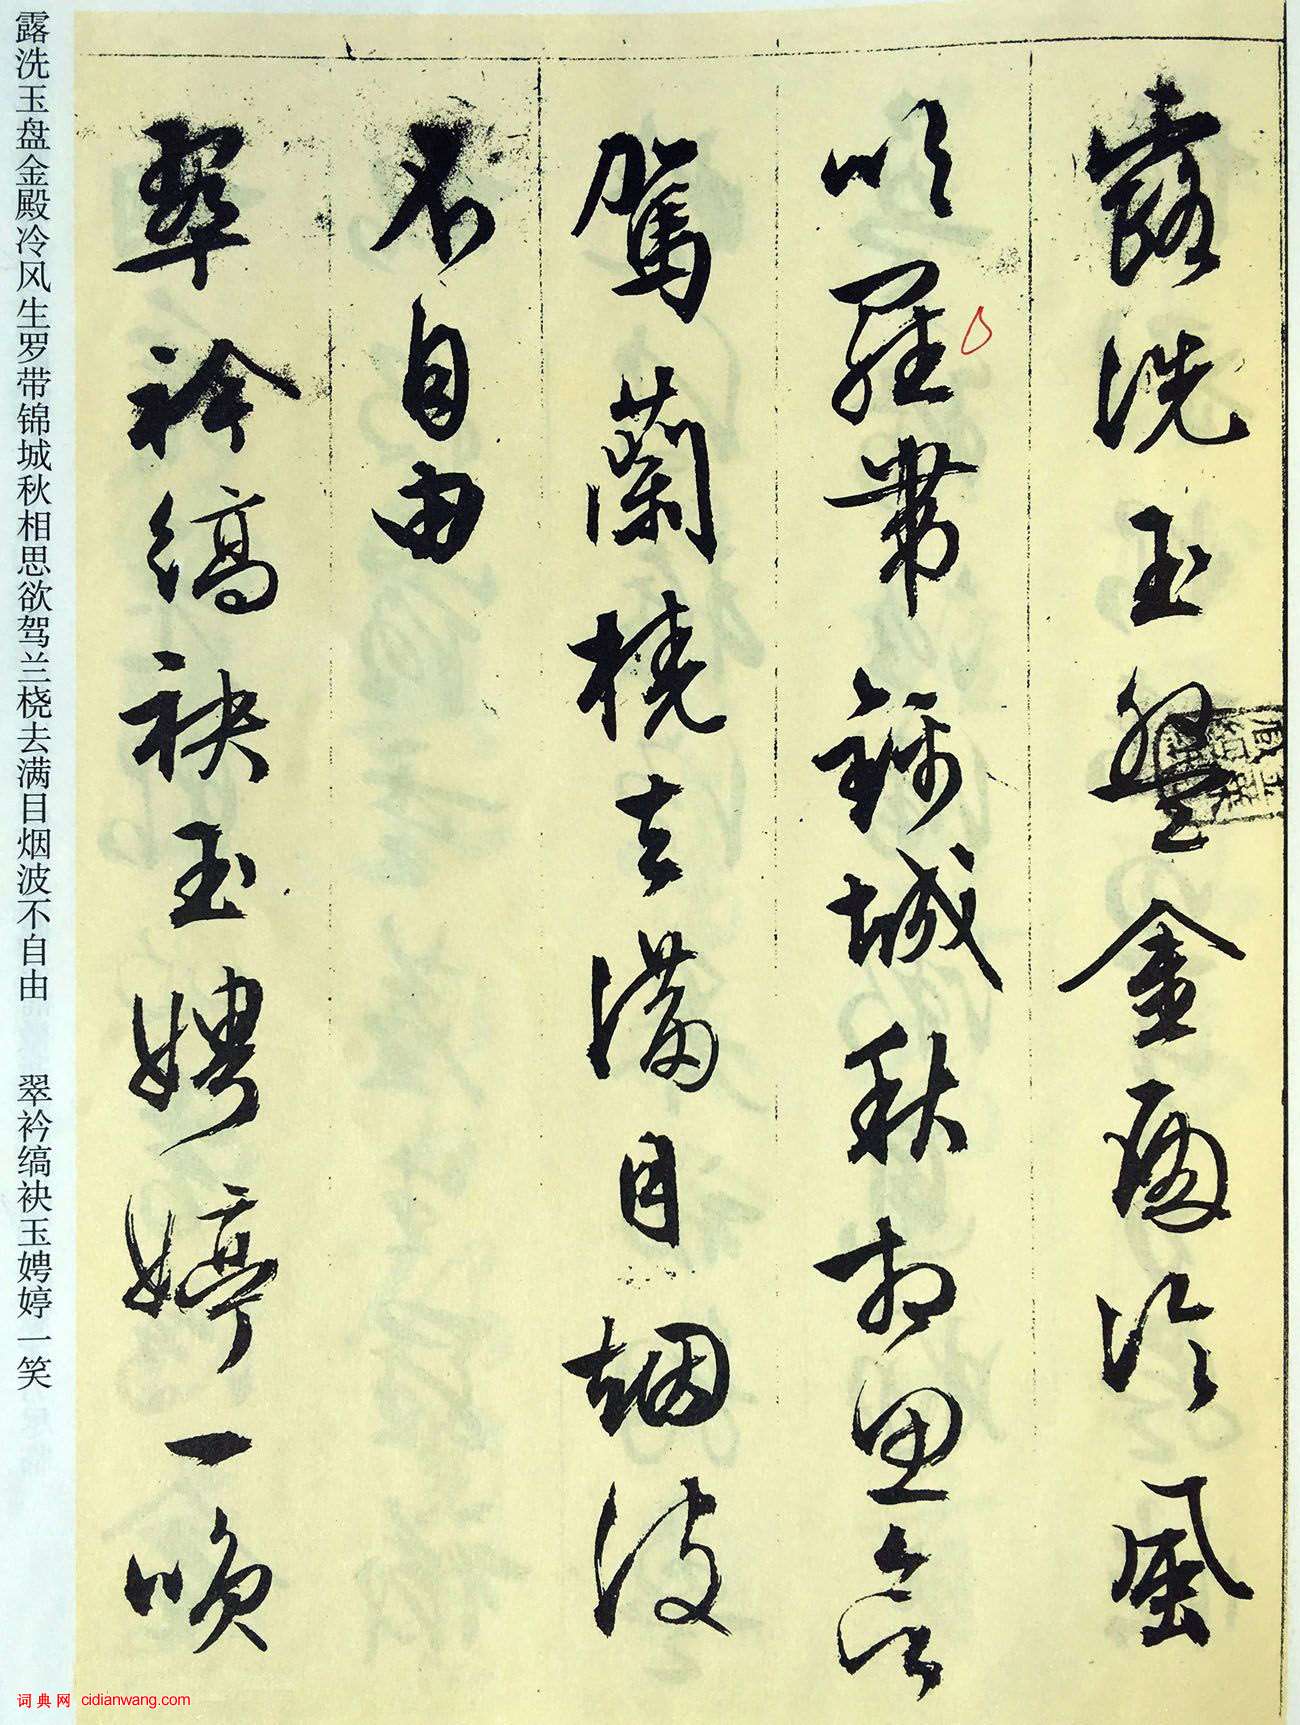 露洗玉盤金殿冷風
吹羅帶錦城秋相思欲
駕蘭橈去滿目烟波
不自由
翠衿縞袂玉娉婷一咲
露洗玉盘金殿冷风生罗带锦城秋相思欲驾兰桡去满目烟波不自由 翠衿缟袂玉娉婷一笑
词典网 cidianwang.com